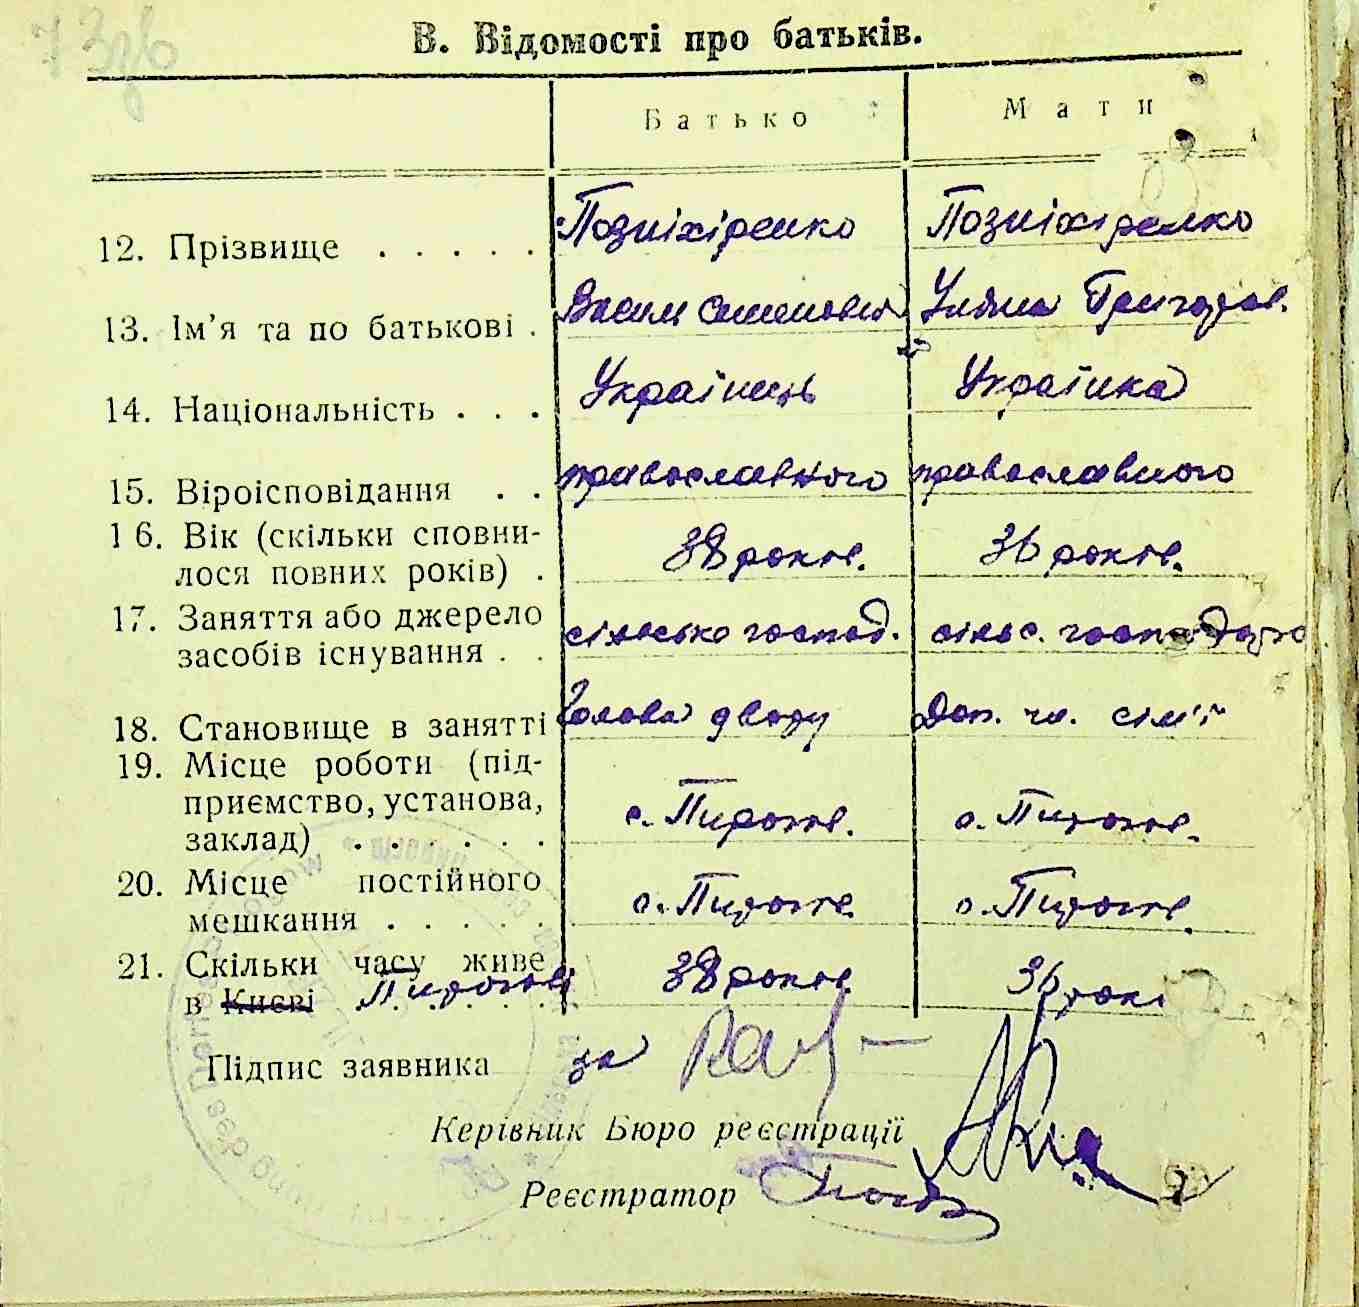 В. Відомості про батьків.
Батько Мати
12. Прізвище . . . . . Позніхіренко Позніхіренко
13. Ім’я та по батькові . Василь Семенович Уляна Григоров.
14. Національність . . . Українець Українка
15. Віроісповідання . . православного православного
16. Вік (скільки сповни-
лося повних років) . 38 років. 36 років.
17. Заняття або джерело
засобів існування . . сільсько господ. сільс. господар
18. Становище в занятті Голова двору Доп. чл. сім'ї
19. Місце роботи (під-
приємство, установа,
заклад) . . . . . . с. Пирогов. с. Пирогов.
20. Місце постійного
мешкання . . . . . с. Пирогов. с. Пирогов.
21. Скільки часу живе
в Києві Пирогові 38 років. 36 рокі
Підпис заявника за
Керівник Бюро реєстрації
Реєстратор